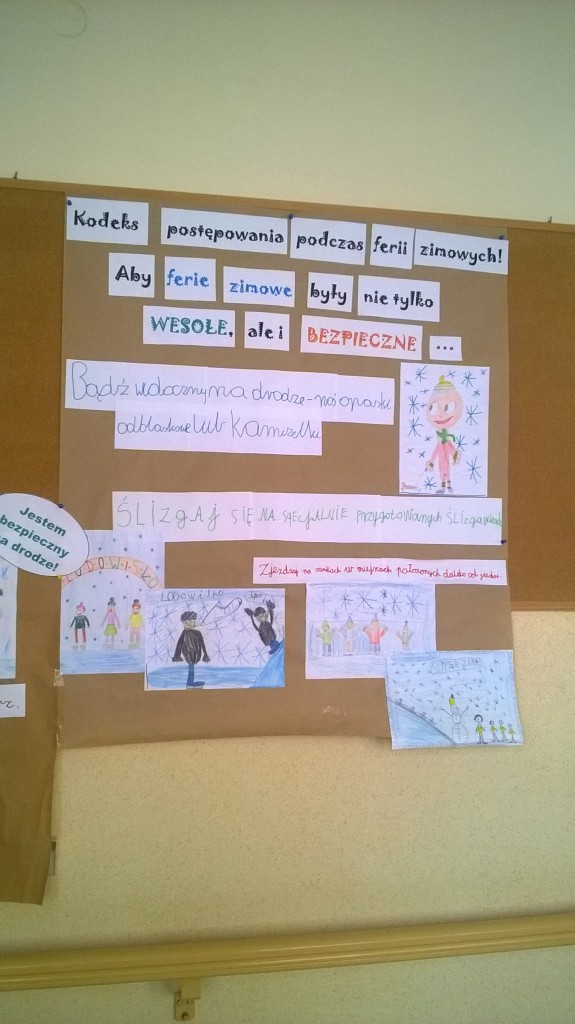 Kodeks postępowania podczas ferii zimowych!
Aby ferie zimowe były nie tylko
WESOŁE, ale i BEZPIECZNE ...
Bądź widoczny na drodze - noś opaski
odblaskowe lub kamizelki
ŚLIZGAJ SIĘ NA SPECJALNIE PRZYGOTOWANYCH ŚLIZGAWKACH
Jestem
bezpieczny
na drodze!
Zjeżdżaj na sankach w miejscach położonych daleko od jezdni.
LODOWISKO
LODOWISKO